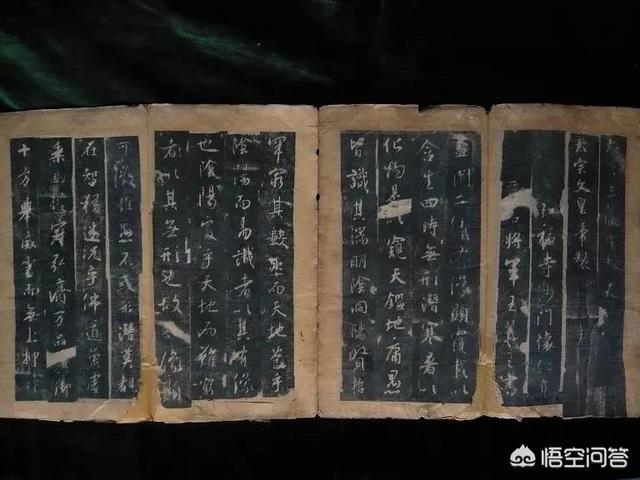 太宗文皇帝製
福寺沙門懷仁集
將軍王羲之書
蓋聞二儀有像顯覆載以
含生四時無形潛寒暑以
化物是以窺天鑑地庸愚
皆識其端明陰洞陽賢哲
罕窮其數然而天地苞乎
陰陽而易識者以其有像
也陰陽處乎天地而難窮
者以其無形也故像顯
可徵雖愚不惑形潛莫覩
在智猶迷況乎佛道崇虛
乘幽控寂弘濟万品御
十方舉威靈而無上抑
悟空问答